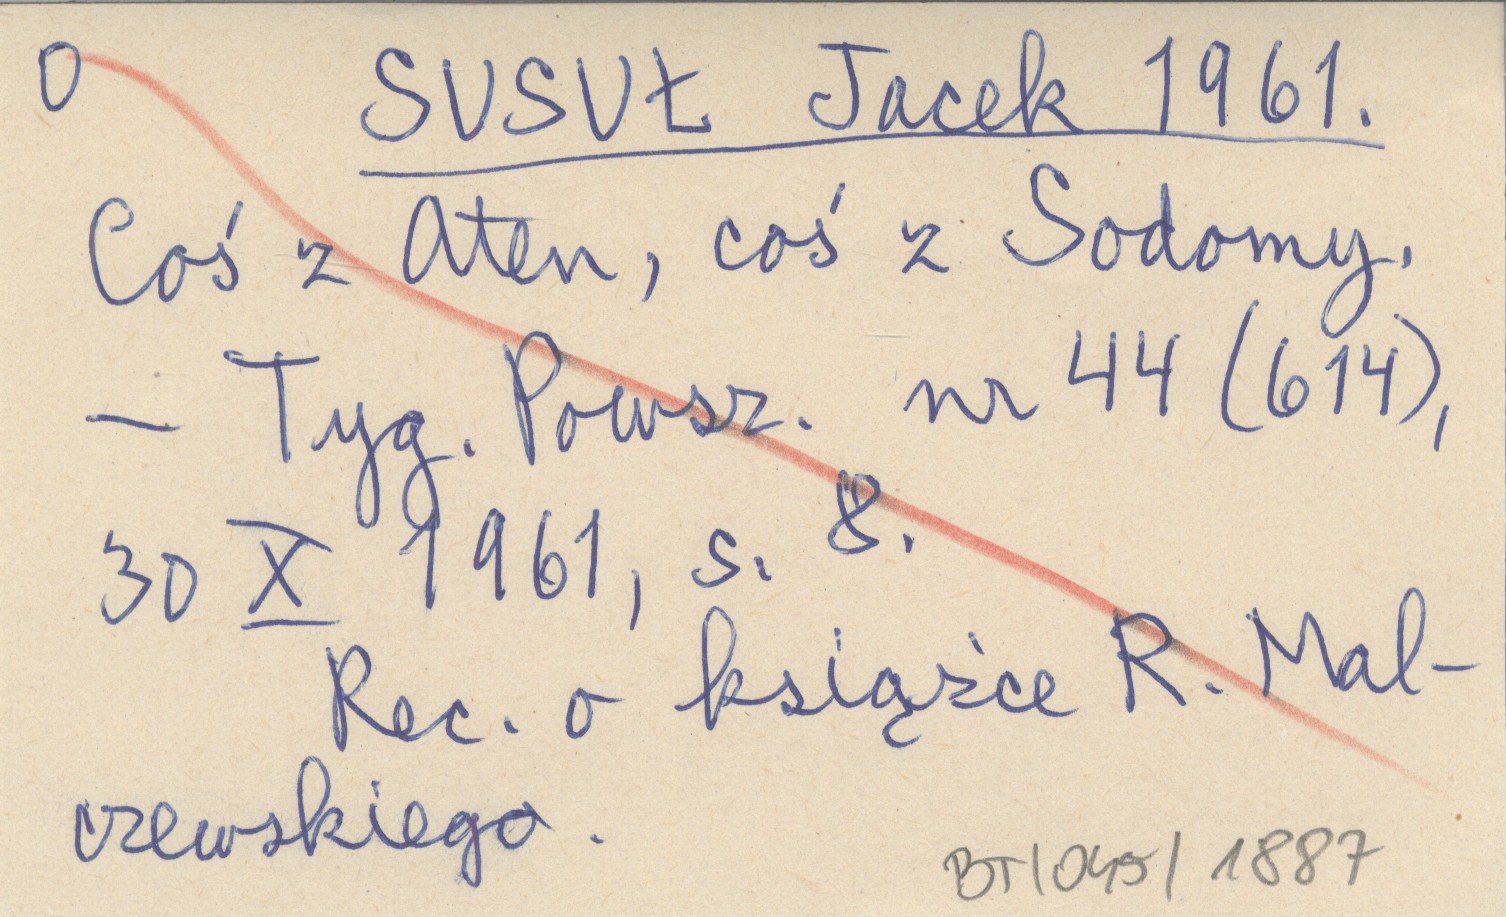 O SUSUŁ Jacek 1961.
Coś z Aten, coś z Sodomy.
— Tyg. Powsz. nr 44 (614),
30 X 1961, s. 8.
Rec. o książce R. Mal-
czewskiego.
BT/045/1887